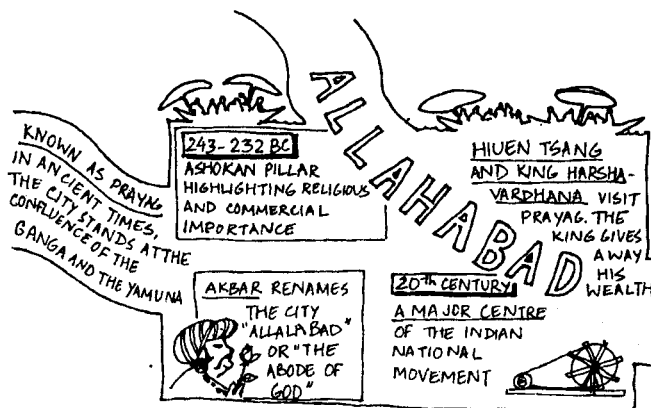 ALLAHABAD
KNOWN AS PRAYAG
IN ANCIENT TIMES,
THE CITY STANDS AT THE
CONFLUENCE OF THE
GANGA AND THE YAMUNA
243-232 BC
ASHOKAN PILLAR
HIGHLIGHTING RELIGIOUS
AND COMMERCIAL
IMPORTANCE
HIUEN TSANG
AND KING HARSHA-
VARDHANA VISIT
PRAYAG. THE
KING GIVES
AWAY
HIS
WEALTH
AKBAR RENAMES
THE CITY
"ALLALABAD"
OR "THE
ABODE OF
GOD"
20th CENTURY
A MAJOR CENTRE
OF THE INDIAN
NATIONAL
MOVEMENT